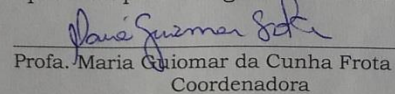 Maria Guiomar Frota
Profa. Maria Guiomar da Cunha Frota
Coordenadora